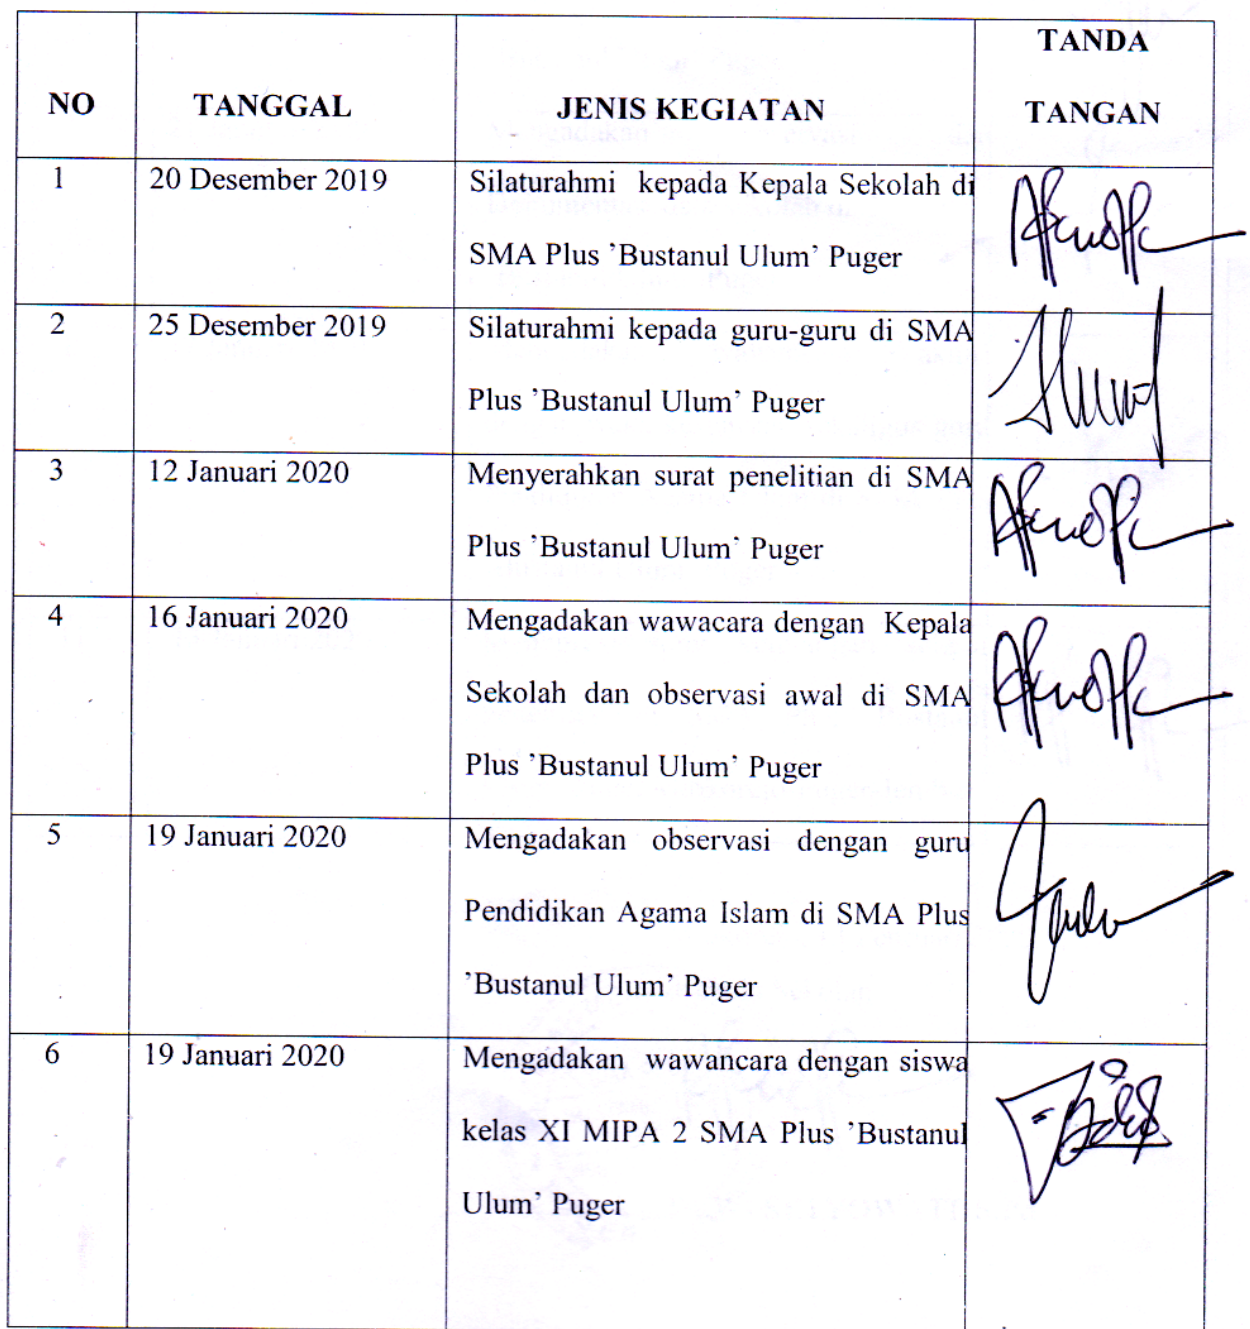 NO TANGGAL JENIS KEGIATAN TANDA
TANGAN
1 20 Desember 2019 Silaturahmi kepada Kepala Sekolah di
SMA Plus ’Bustanul Ulum’ Puger
2 25 Desember 2019 Silaturahmi kepada guru-guru di SMA
Plus ’Bustanul Ulum’ Puger
3 12 Januari 2020 Menyerahkan surat penelitian di SMA
Plus ’Bustanul Ulum’ Puger
4 16 Januari 2020 Mengadakan wawacara dengan Kepala
Sekolah dan observasi awal di SMA
Plus ’Bustanul Ulum’ Puger
5 19 Januari 2020 Mengadakan observasi dengan guru
Pendidikan Agama Islam di SMA Plus
’Bustanul Ulum’ Puger
6 19 Januari 2020 Mengadakan wawancara dengan siswa
kelas XI MIPA 2 SMA Plus ’Bustanul
Ulum’ Puger